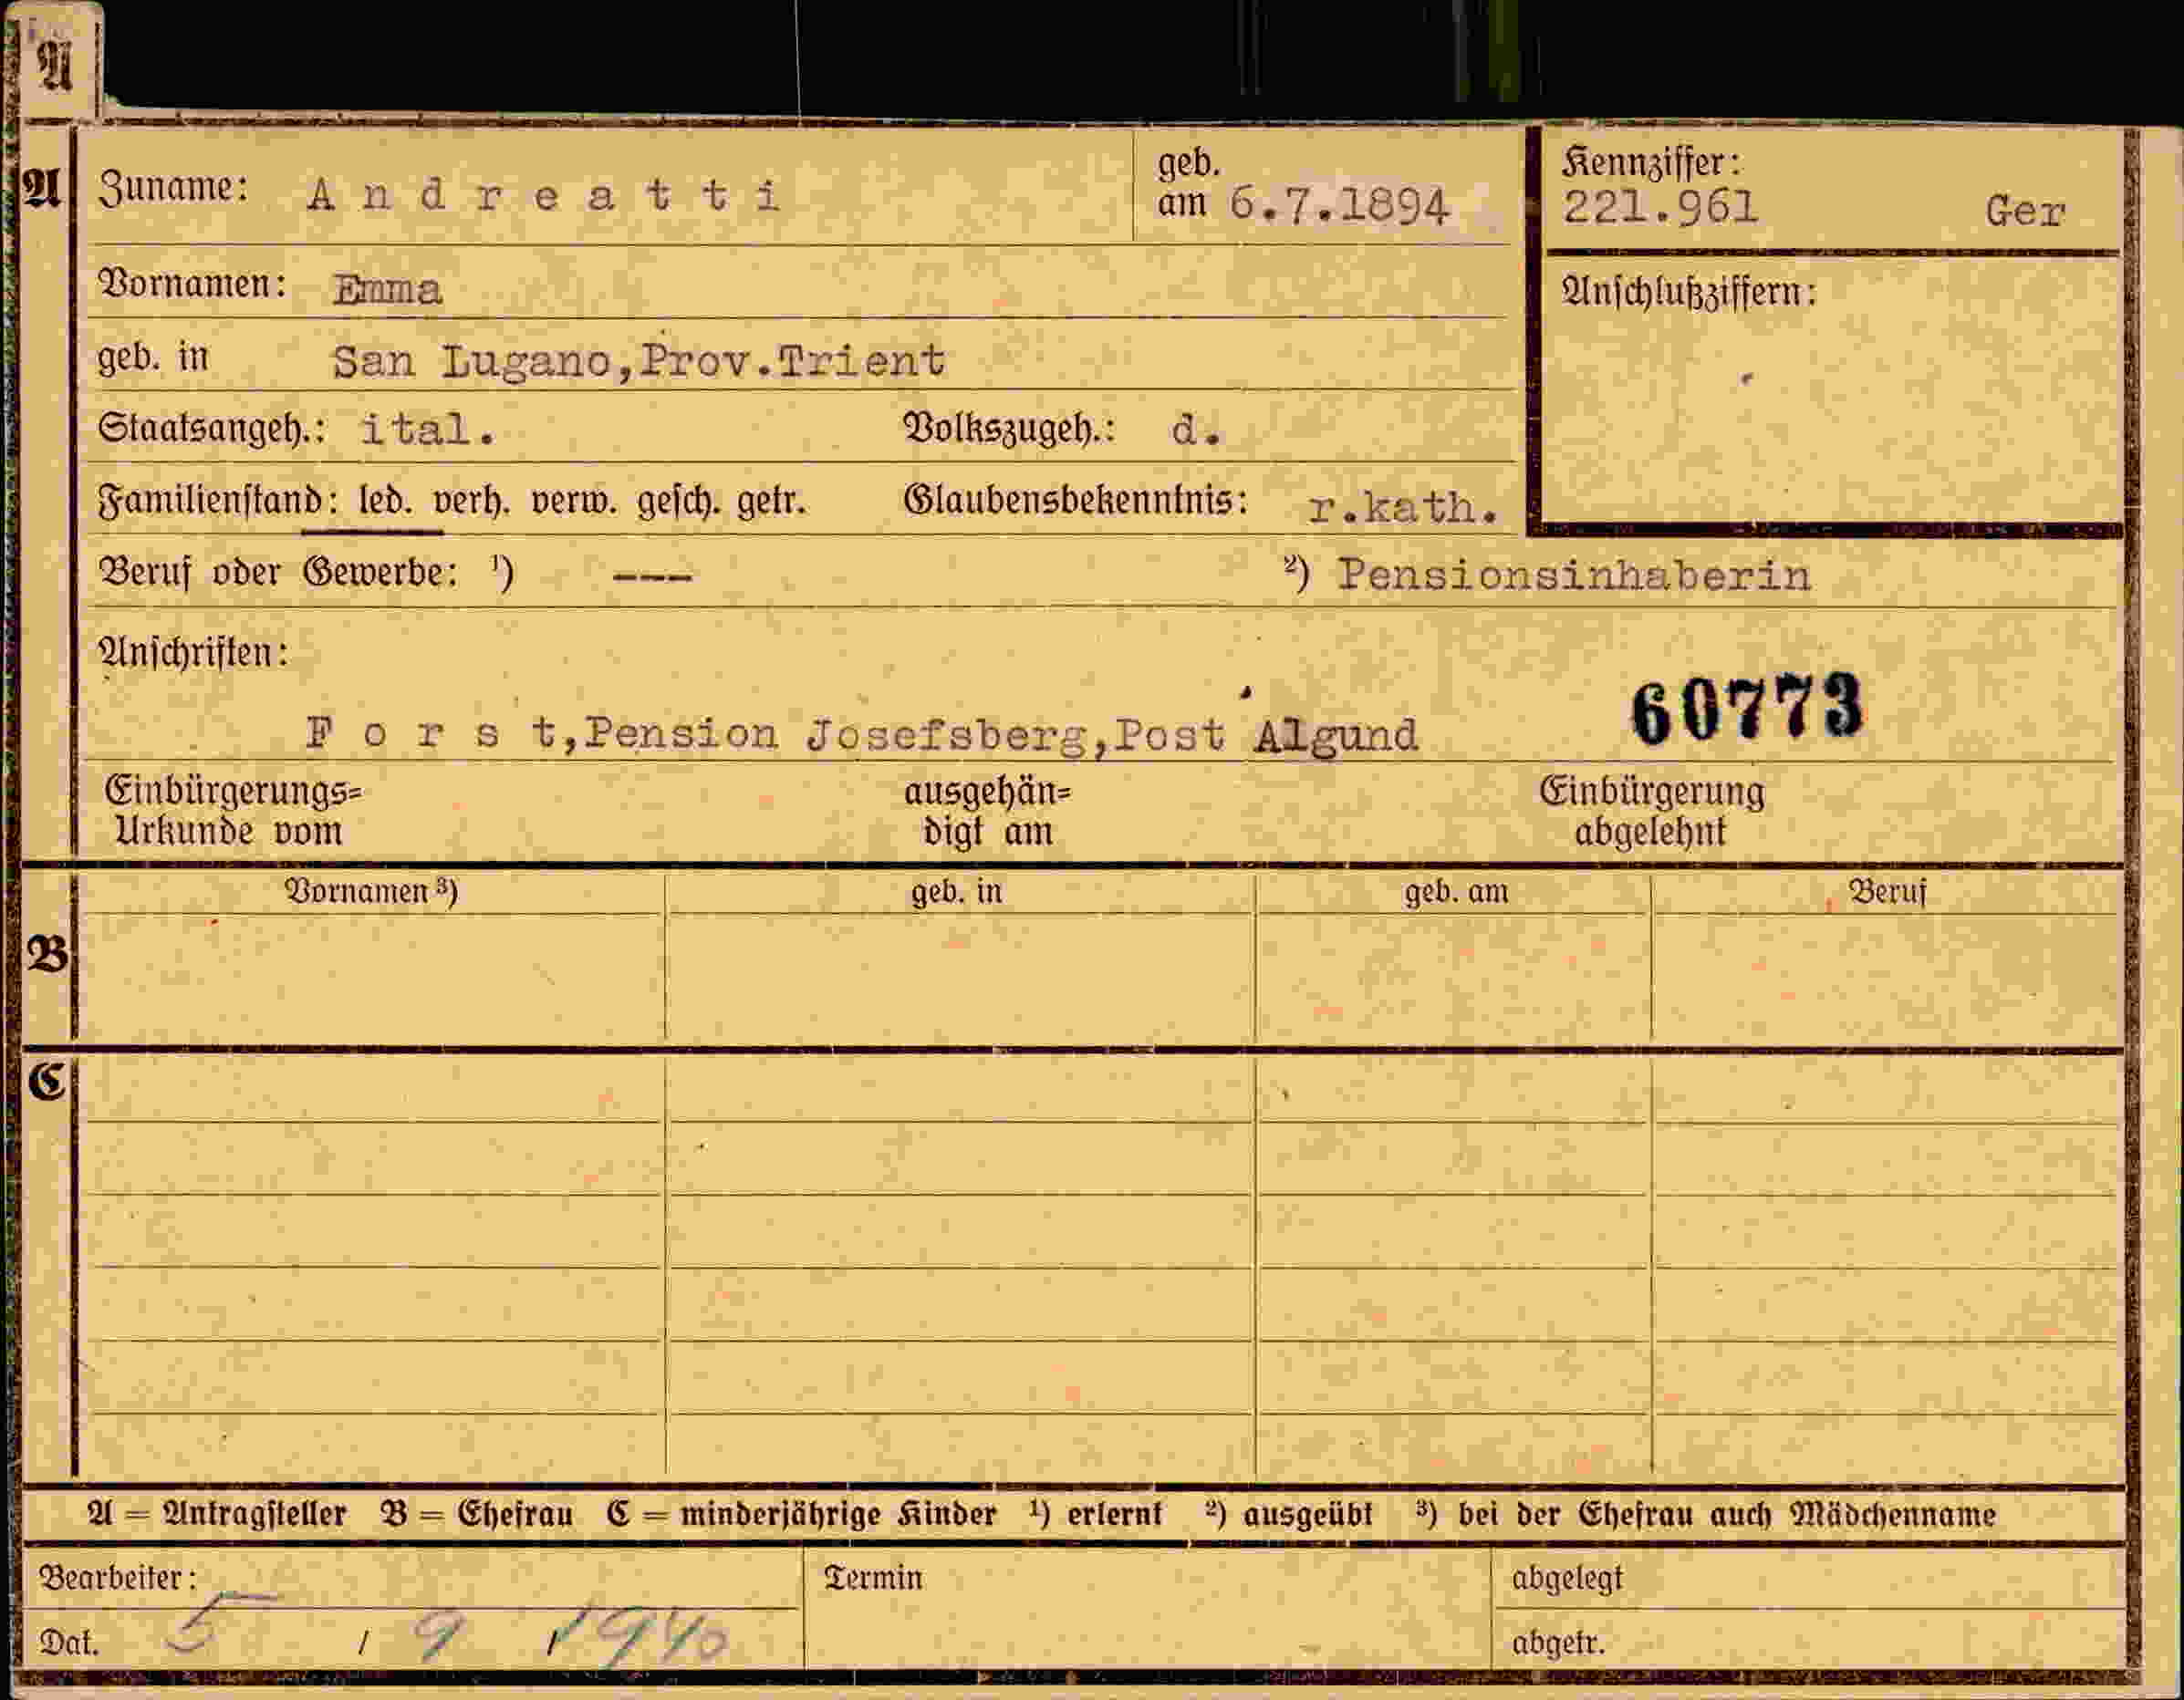 A
A Zuname: Andreatti geb. am 6.7.1894 Kennziffer: 221.961 Ger
Vornamen: Emma Anschlußziffern:
geb. in San Lugano,Prov.Trient
Staatsangeh.: ital. Volkszugeh.: d.
Familienstand: led. verh. verw. gesch. getr. Glaubensbekenntnis: r.kath.
Beruf oder Gewerbe: ¹) --- ²) Pensionsinhaberin
Anschriften:
60773
Forst,Pension Josefsberg,Post Algund
Einbürgerungs= ausgehän= Einbürgerung
Urkunde vom digt am abgelehnt
Vornamen ³) geb. in geb. am Beruf
B
C
A = Antragsteller B = Ehefrau C = minderjährige Kinder ¹) erlernt ²) ausgeübt ³) bei der Ehefrau auch Mädchenname
Bearbeiter: Termin abgelegt
Dat. 5 / 9 / 1940 abgetr.